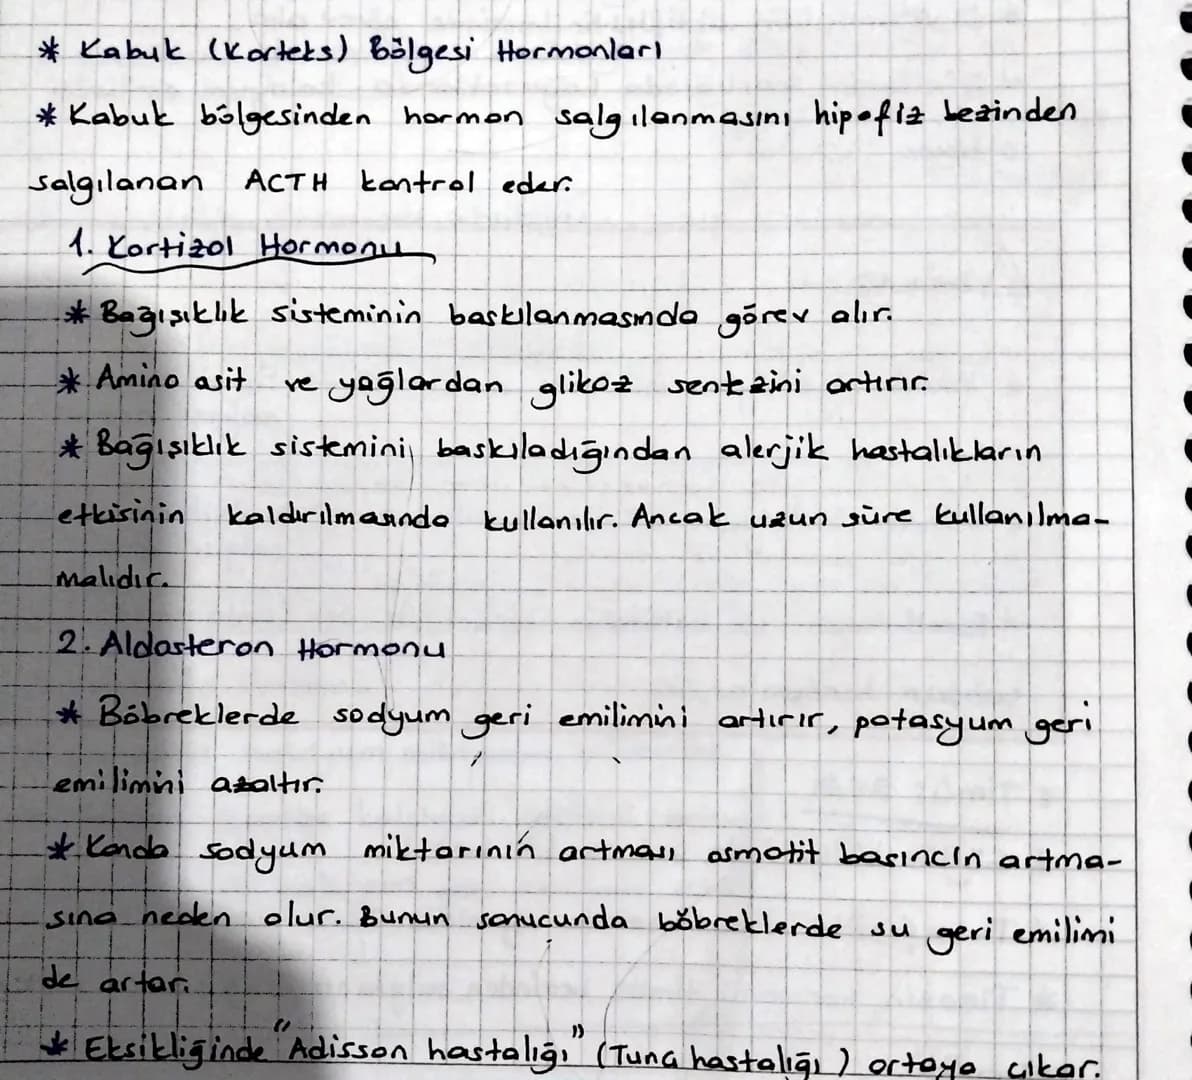 * Kabuk (Korteks) Bölgesi Hormonları
* Kabuk bölgesinden hormon salgılanmasını hipofiz bezinden
salgılanan ACTH kontrol eder.
1. Kortizol Hormonu
* Bağışıklık sisteminin baskılanmasında görev alır.
* Amino asit ve yağlardan glikoz sentezini artırır.
* Bağışıklık sistemini baskıladığından alerjik hastalıkların
etkisinin kaldırılmasında kullanılır. Ancak uzun süre kullanılma-
malıdır.
2. Aldosteron Hormonu
* Böbreklerde sodyum geri emilimini artırır, potasyum geri
emilimini azaltır.
* Kanda sodyum miktarının artması osmotik basıncın artma-
sına neden olur. Bunun sonucunda böbreklerde su geri emilimi
de artar.
* Eksikliğinde "Adisson hastalığı" (Tunç hastalığı) ortaya çıkar.